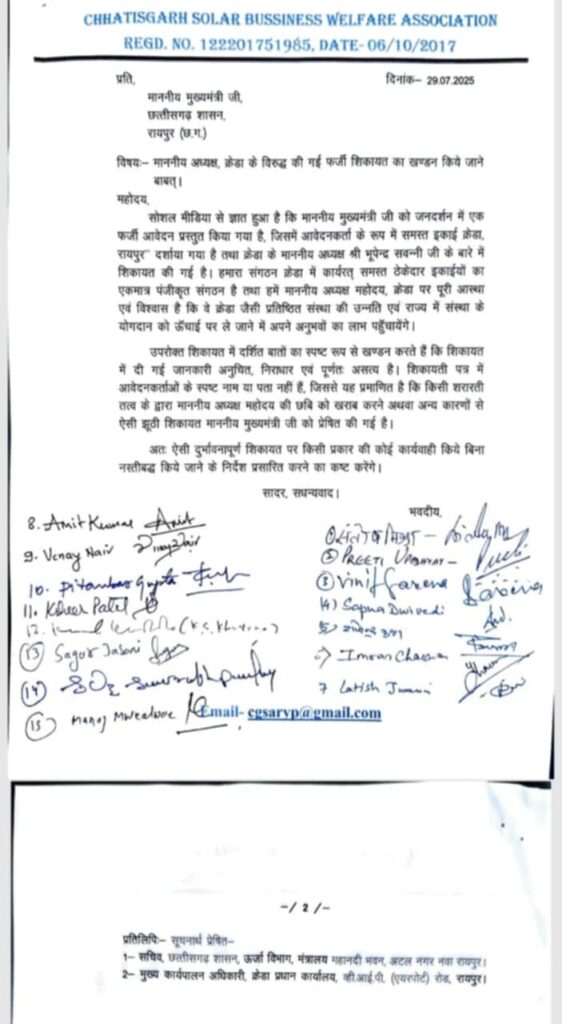 CHHATISGARH SOLAR BUSSINESS WELFARE ASSOCIATION
REGD. NO. 122201751985, DATE- 06/10/2017
प्रति,
दिनांक– 29.07.2025
माननीय मुख्यमंत्री जी,
छत्तीसगढ़ शासन,
रायपुर (छ.ग.)
विषयः– माननीय अध्यक्ष, क्रेडा के विरुद्ध की गई फर्जी शिकायत का खण्डन किये जाने
बाबत्।
महोदय,
सोशल मीडिया से ज्ञात हुआ है कि माननीय मुख्यमंत्री जी को जनदर्शन में एक
फर्जी आवेदन प्रस्तुत किया गया है, जिसमें आवेदनकर्ता के रूप में समस्त इकाई क्रेडा,
रायपुर" दर्शाया गया है तथा क्रेडा के माननीय अध्यक्ष श्री भूपेन्द्र सवन्नी जी के बारे में
शिकायत की गई है। हमारा संगठन क्रेडा में कार्यरत् समस्त ठेकेदार इकाईयों का
एकमात्र पंजीकृत संगठन है तथा हमें माननीय अध्यक्ष महोदय, क्रेडा पर पूरी आस्था
एवं विश्वास है कि वे क्रेडा जैसी प्रतिष्ठित संस्था की उन्नति एवं राज्य में संस्था के
योगदान को ऊँचाई पर ले जाने में अपने अनुभवों का लाभ पहुँचायेंगे।
उपरोक्त शिकायत में दर्शित बातों का स्पष्ट रूप से खण्डन करते हैं कि शिकायत
में दी गई जानकारी अनुचित, निराधार एवं पूर्णतः असत्य है। शिकायती पत्र में
आवेदनकर्ताओं के स्पष्ट नाम या पता नहीं हैं, जिससे यह प्रमाणित है कि किसी शरारती
तत्व के द्वारा माननीय अध्यक्ष महोदय की छबि को खराब करने अथवा अन्य कारणों से
ऐसी झूठी शिकायत माननीय मुख्यमंत्री जी को प्रेषित की गई है।
अतः ऐसी दुर्भावनापूर्ण शिकायत पर किसी प्रकार की कोई कार्यवाही किये बिना
नस्तीबद्ध किये जाने के निर्देश प्रसारित करने का कष्ट करेंगे।
सादर, सधन्यवाद।
भवदीय,
8. Amit Kumar
9. Vinay Nair
10. Pitambar Gupta
11. Kishor Patel
12.
13 Sagar Jasani
14
15 Manoj
② PREETI
③ Vinit
(4) Sapna Dwivedi
Imran
7 Latish
Email- cgsaryp@gmail.com
-/ 2 /-
प्रतिलिपिः– सूचनार्थ प्रेषित–
1– सचिव, छत्तीसगढ़ शासन, ऊर्जा विभाग, मंत्रालय महानदी भवन, अटल नगर नवा रायपुर।
2– मुख्य कार्यपालन अधिकारी, क्रेडा प्रधान कार्यालय, व्ही.आई.पी. (एयरपोर्ट) रोड, रायपुर।